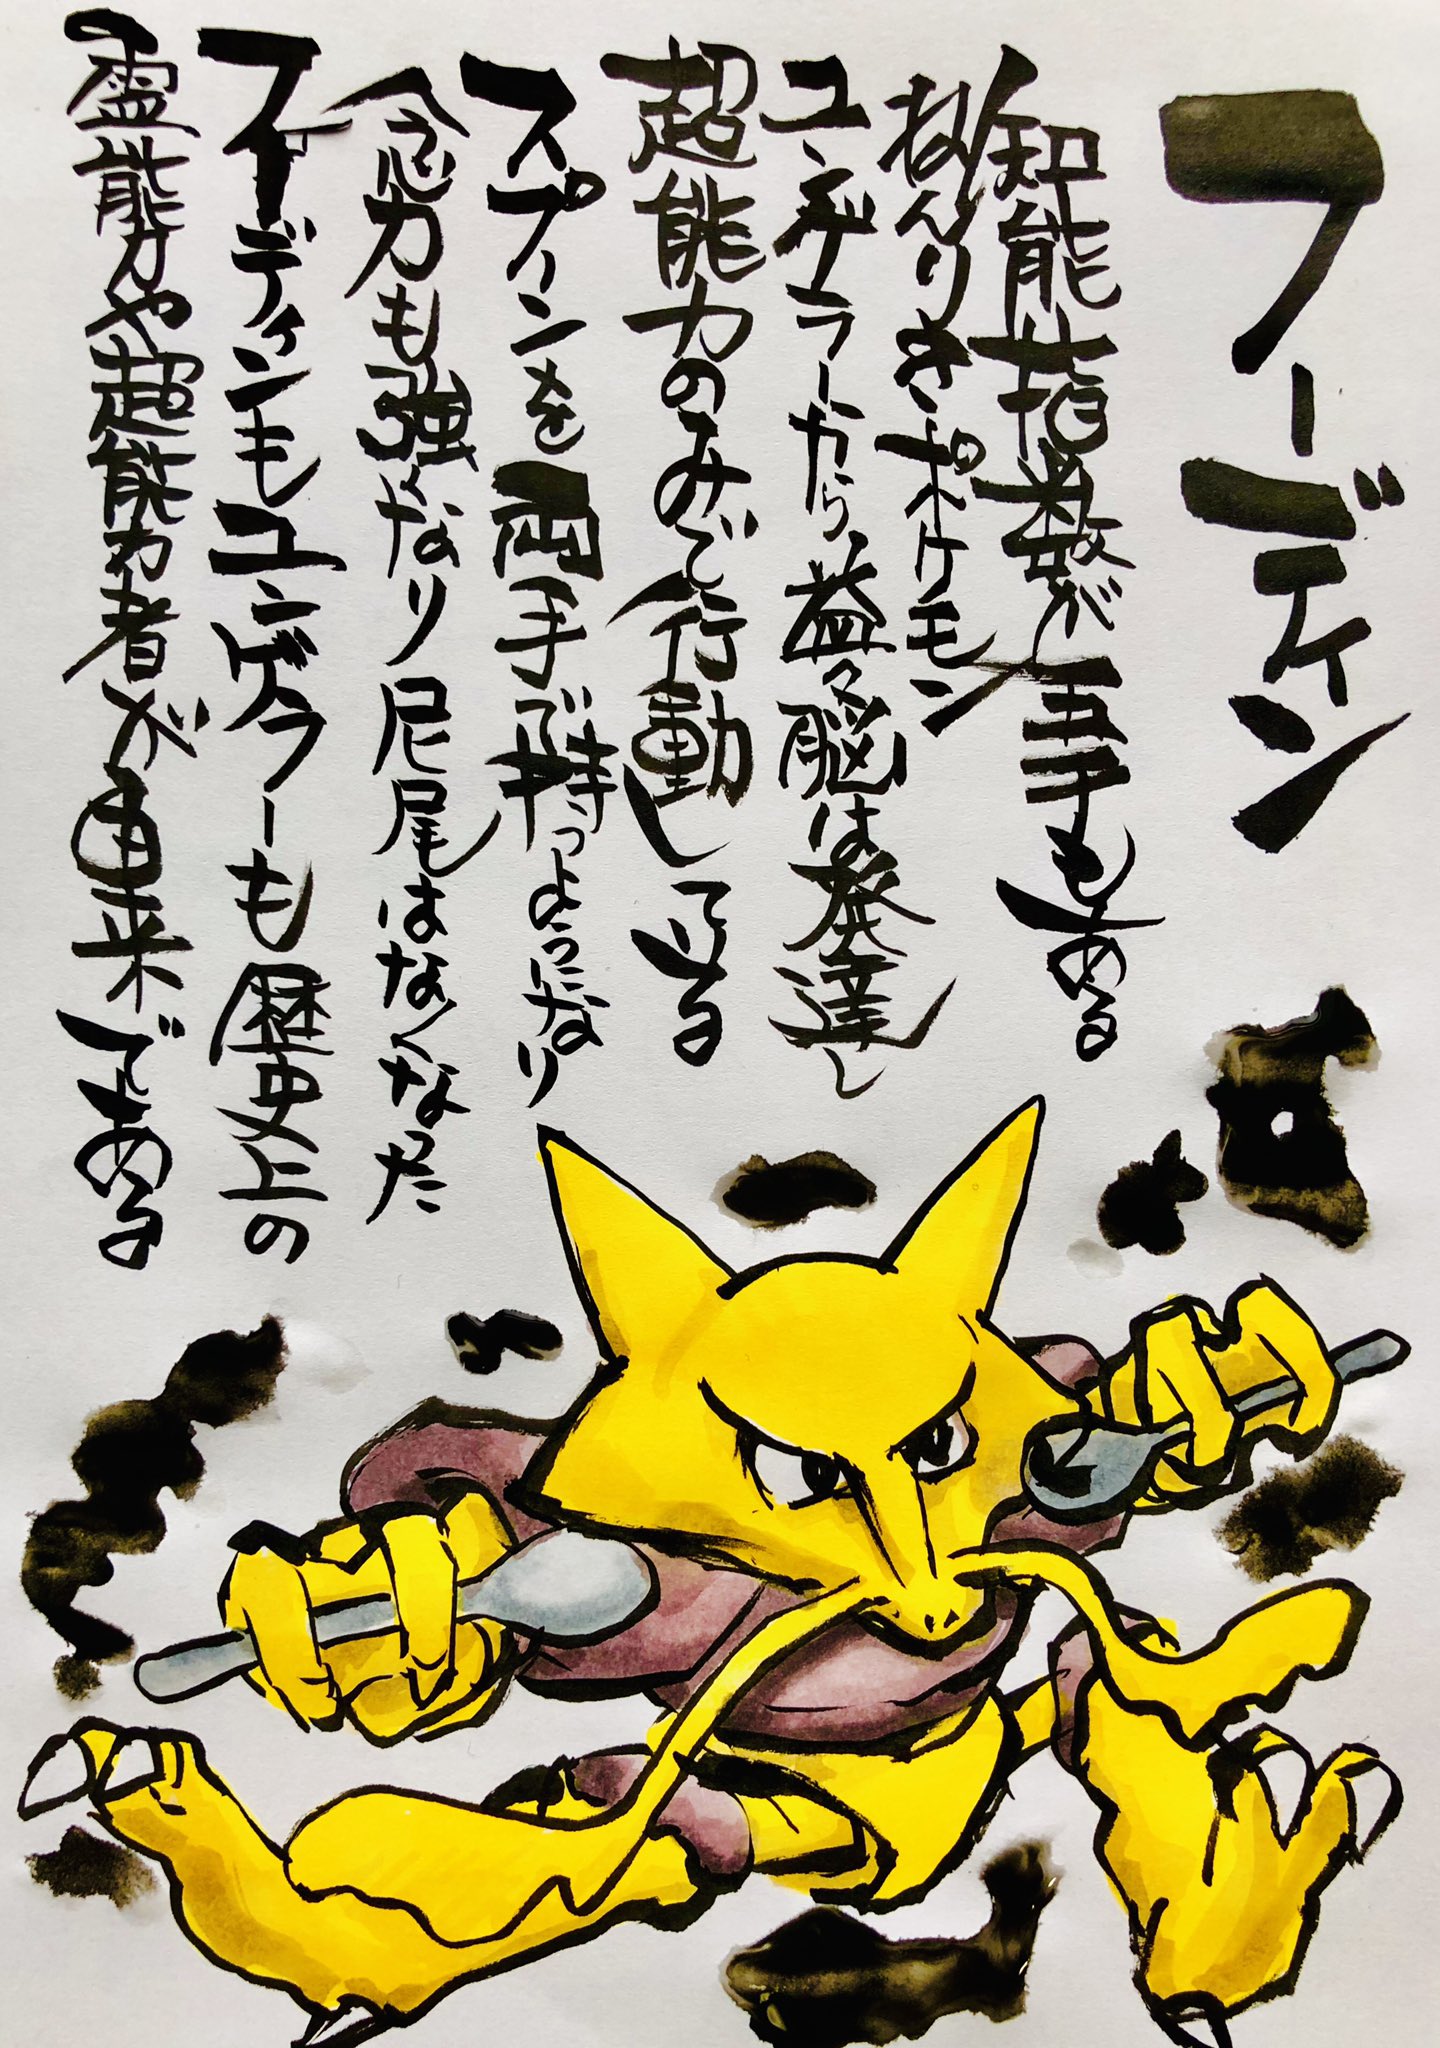 フーディン
知能指数が五千もある
ねんりきポケモン
ユンゲラーから益々脳は発達し
超能力のみで行動している
スプーンを両手で持つようになり
念力も強くなり尻尾はなくなった
フーディンもユンゲラーも歴史上の
霊能力や超能力者が由来である